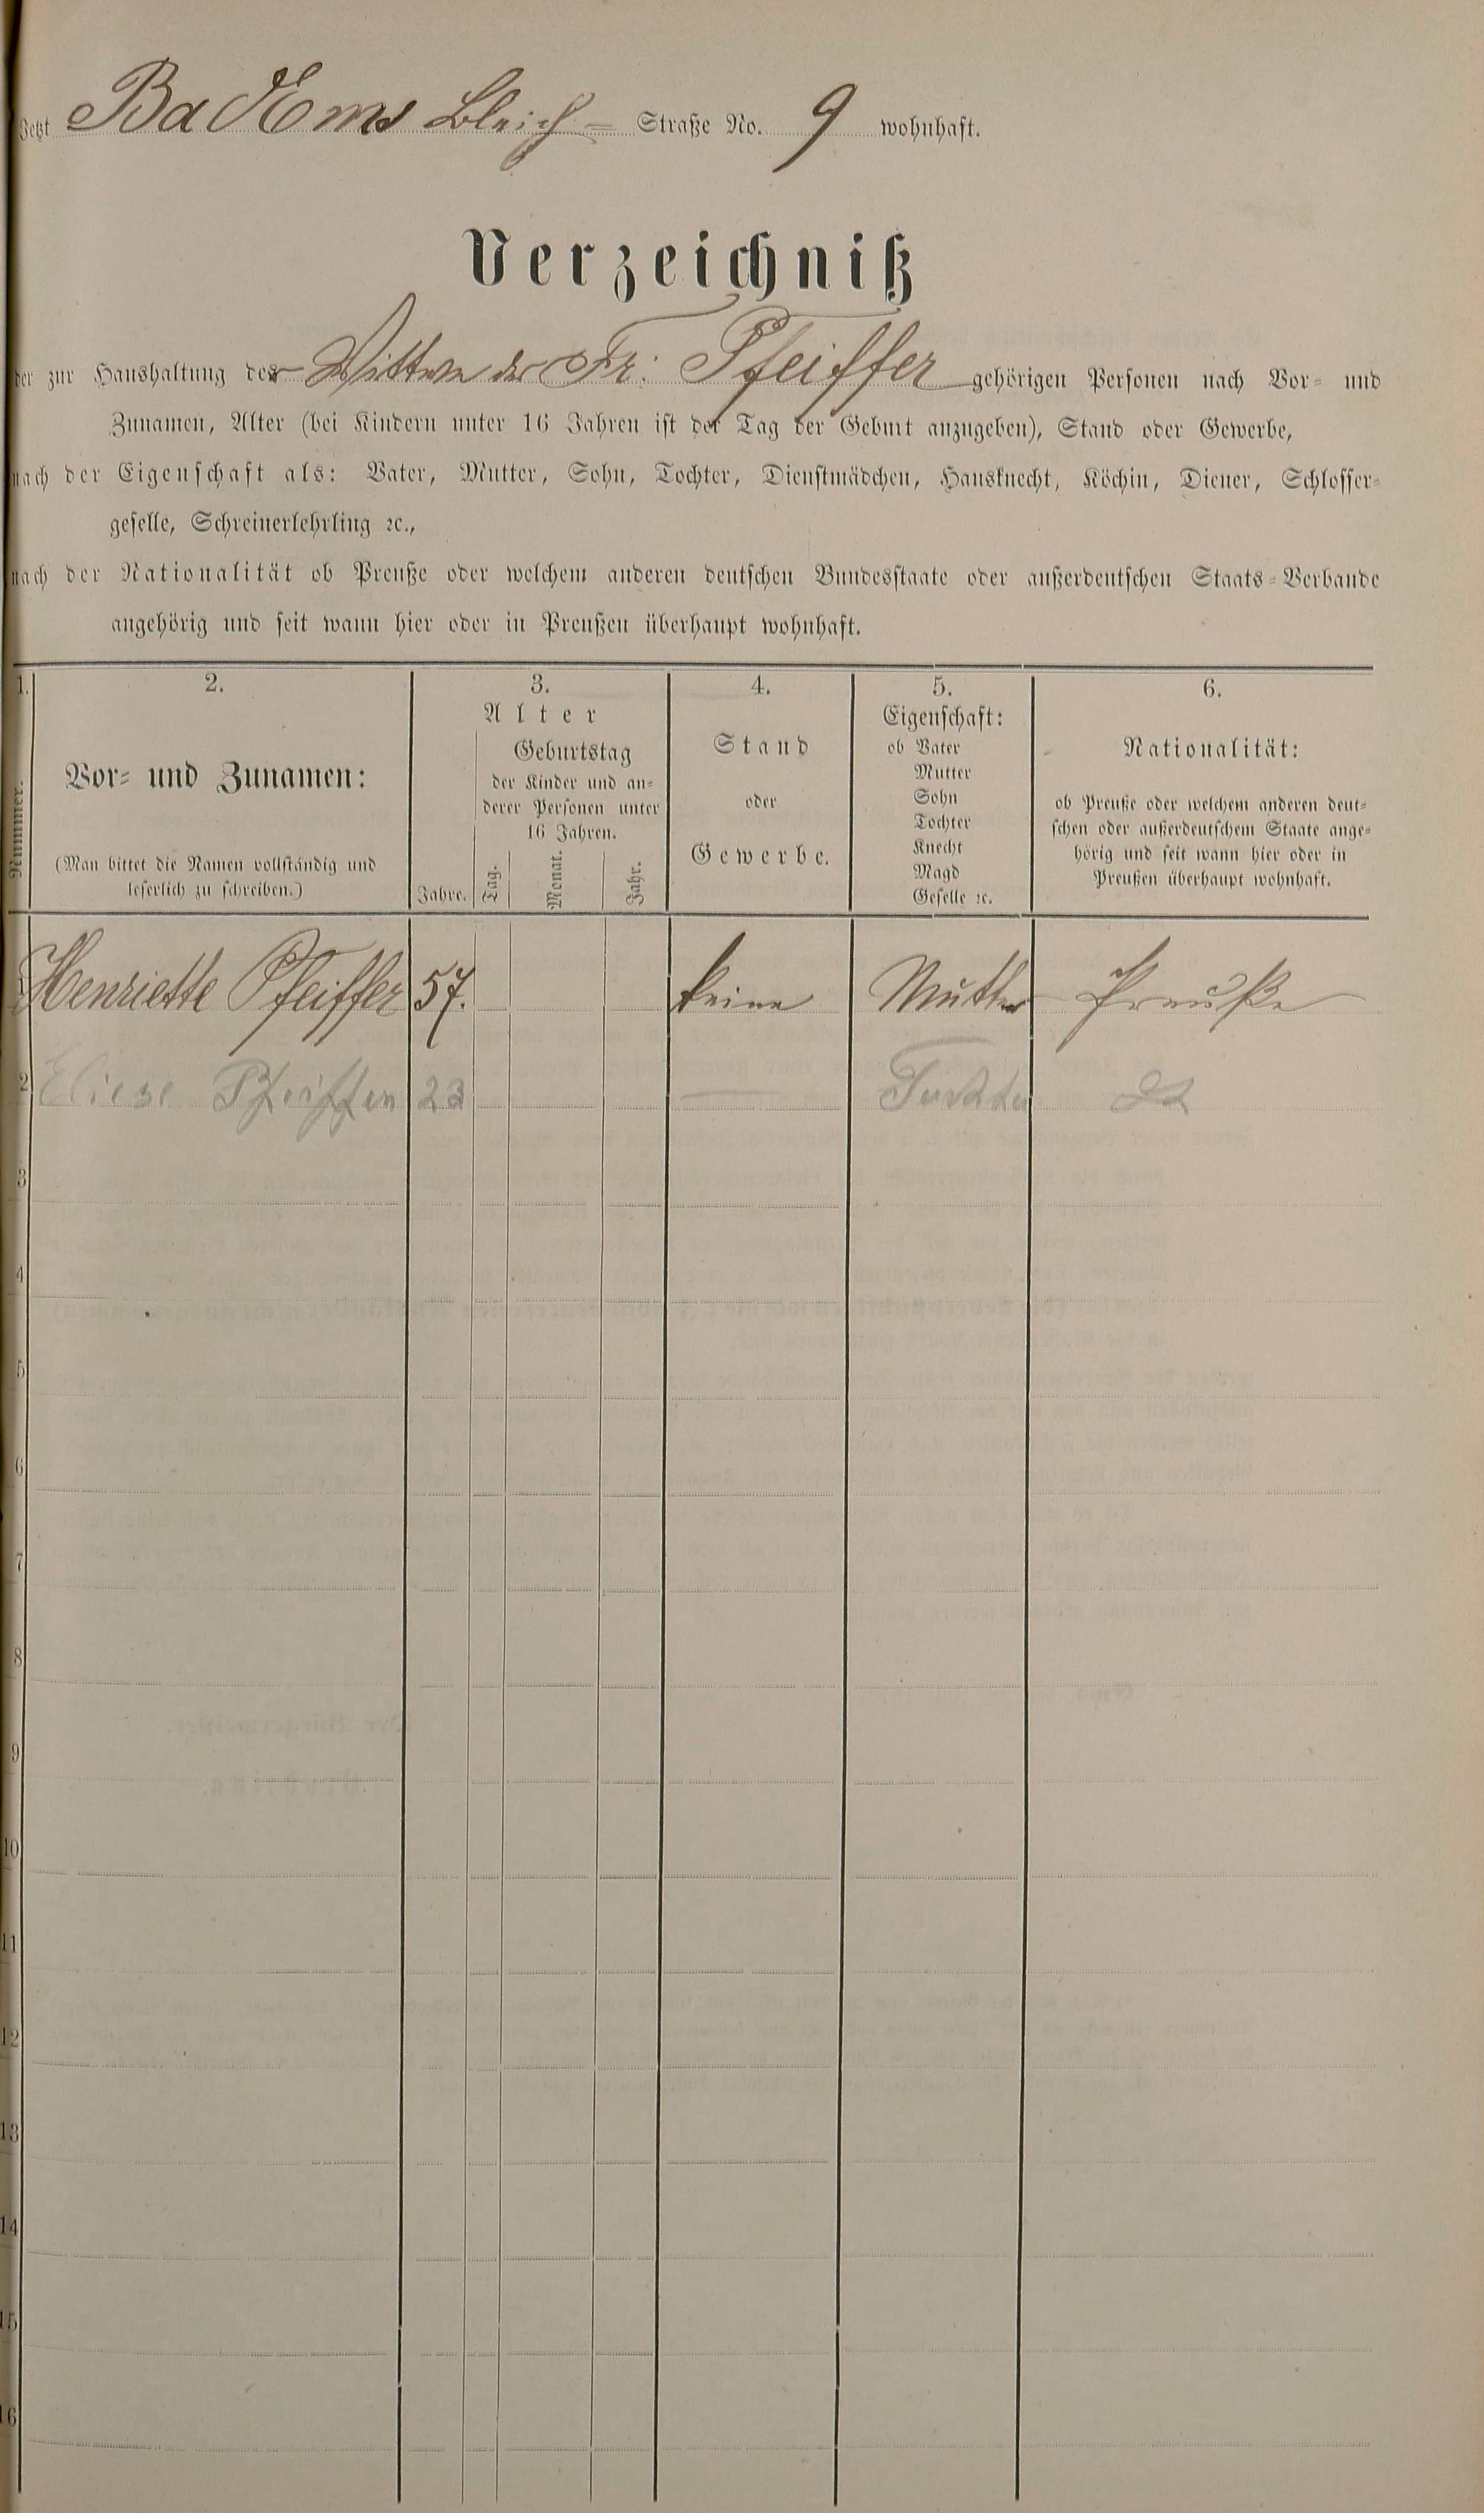 Jetzt Bad Ems Bleich- Straße No. 9 wohnhaft.
Verzeichniß
der zur Haushaltung der Wittwe der Fr. Pfeiffer gehörigen Personen nach Vor- und
Zunamen, Alter (bei Kindern unter 16 Jahren ist der Tag der Geburt anzugeben), Stand oder Gewerbe,
nach der Eigenschaft als: Vater, Mutter, Sohn, Tochter, Dienstmädchen, Hausknecht, Köchin, Diener, Schlosser-
geselle, Schreinerlehrling ꝛc.,
nach der Nationalität ob Preuße oder welchem anderen deutschen Bundesstaate oder außerdeutschen Staats-Verbande
angehörig und seit wann hier oder in Preußen überhaupt wohnhaft.
1. 2. 3. 4. 5. 6.
Nummer.
Vor- und Zunamen:
(Man bittet die Namen vollständig und
leserlich zu schreiben.)
Alter
Jahre.
Geburtstag
der Kinder und an-
derer Personen unter
16 Jahren.
Tag. Monat. Jahr.
Stand
oder
Gewerbe.
Eigenschaft:
ob Vater
Mutter
Sohn
Tochter
Knecht
Magd
Geselle ꝛc.
Nationalität:
ob Preuße oder welchem anderen deut-
schen oder außerdeutschem Staate ange-
hörig und seit wann hier oder in
Preußen überhaupt wohnhaft.
Henriette Pfeiffer 57. keine Mutter Preuße
2 Eliese Pfeiffer 23 — Tochter
3
4
5
6
7
8
9
10
11
12
13
14
15
16